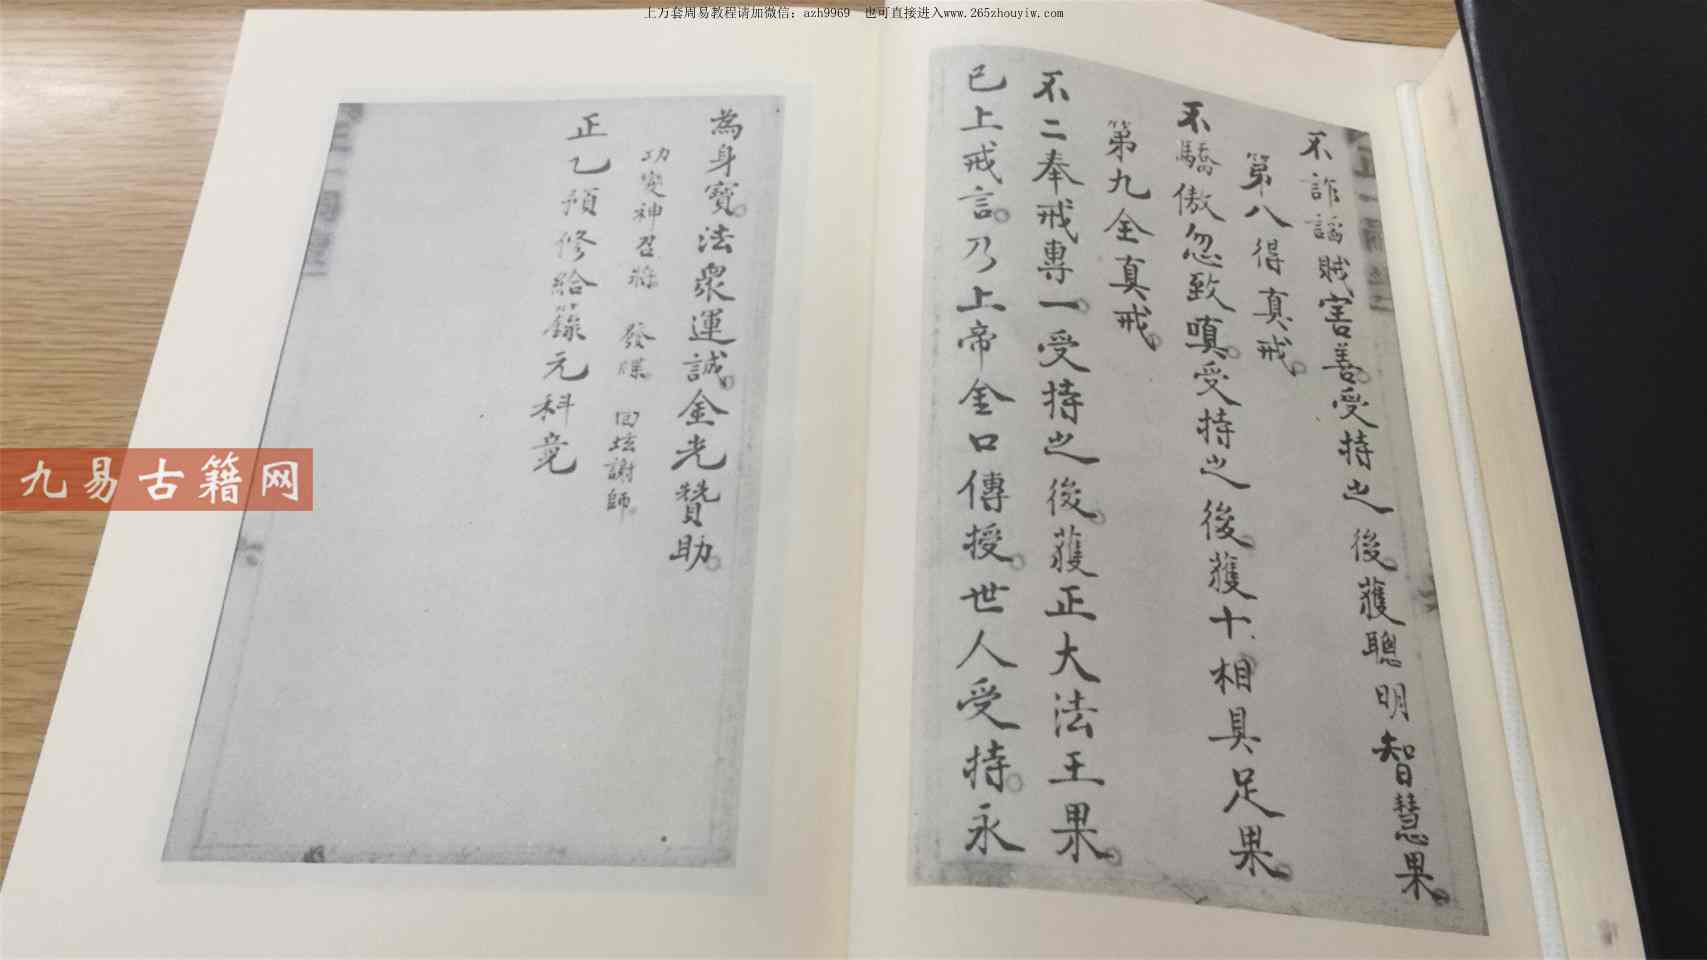 上万套周易教程请加微信：azh9969　也可直接进入www.265zhouyiw.com
不詐謟賊害善。受持之後。獲聰明智慧果。
第八得真戒。
不驕傲忽致嗔。受持之後。獲十相具足果。
第九全真戒。
不二奉戒專一。受持之後。獲正大法王果。
已上戒言。乃上帝金口傳授。世人受持。永
為身寶。法衆運誠。金光贊助。
功變神召將。發牒。回壇謝師。
正乙預修給籙元科竟
九易古籍网